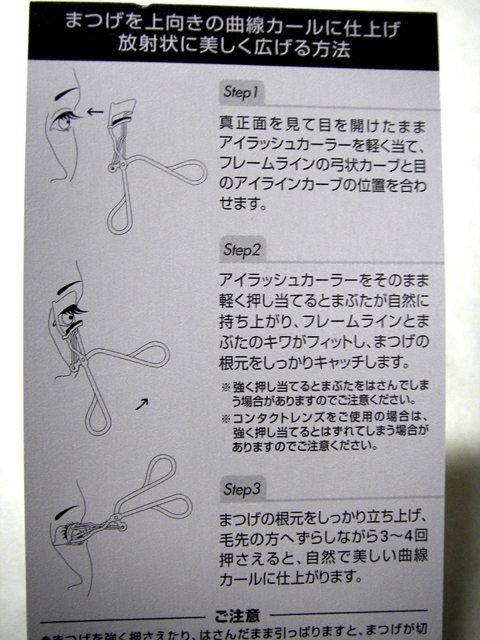 まつげを上向きの曲線カールに仕上げ
放射状に美しく広げる方法
Step1
真正面を見て目を開けたまま
アイラッシュカーラーを軽く当て、
フレームラインの弓状カーブと目
のアイラインカーブの位置を合わ
せます。
Step2
アイラッシュカーラーをそのまま
軽く押し当てるとまぶたが自然に
持ち上がり、フレームラインとま
ぶたのキワがフィットし、まつげの
根元をしっかりキャッチします。
※強く押し当てるとまぶたをはさんでしま
う場合がありますのでご注意ください。
※コンタクトレンズをご使用の場合は、
強く押し当てるとはずれてしまう場合が
ありますのでご注意ください。
Step3
まつげの根元をしっかり立ち上げ、
毛先の方へずらしながら3〜4回
押さえると、自然で美しい曲線
カールに仕上がります。
ご注意
●まつげを強く押さえたり、はさんだまま引っぱりますと、まつげが切